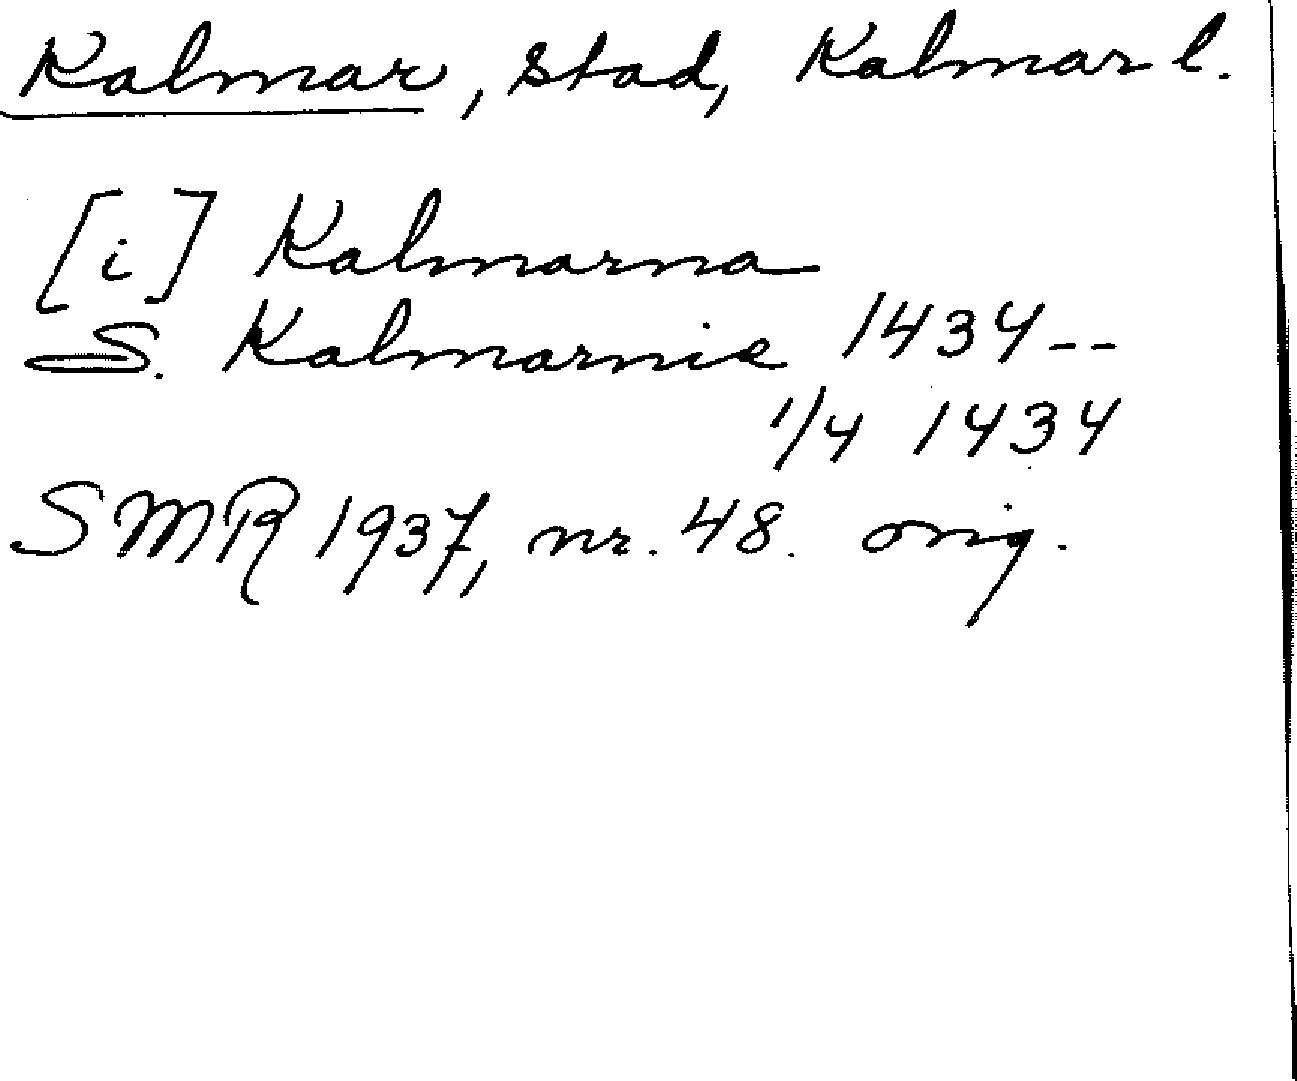 Kalmar, stad, Kalmar l.
[i] Kalmarna
S. Kalmarnie 1434--
1/4 1434
SMR 1937, nr. 48. orig.